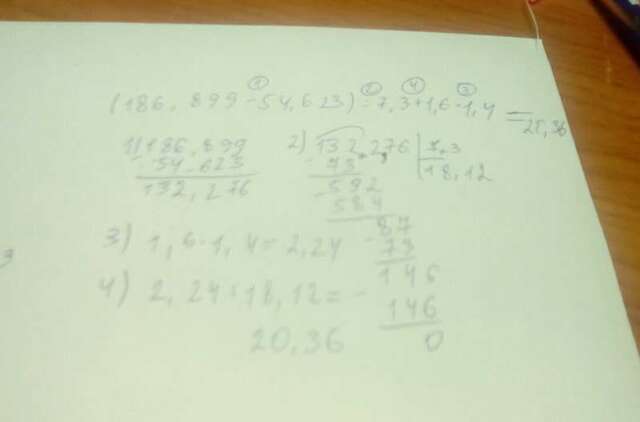 (186,899-54,623):7,3+1,6·1,4=20,36
1) 186,899
- 54,623
132,276
2) 132,276 | 7,3
- 73 18,12
592
- 584
87
- 73
146
- 146
0
3) 1,6·1,4=2,24
4) 2,24+18,12=
20,36